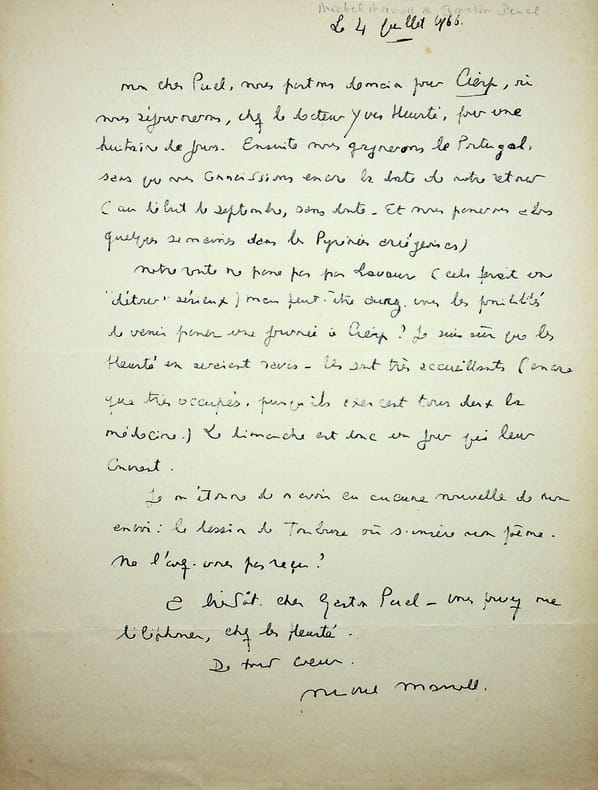 Michel Manoll à Gaston Puel
Le 4 Juillet 1966.
mon cher Puel, nous partons demain pour Cierp, où
nous séjournerons, chez le docteur Yves Heurté, pour une
huitaine de jours. Ensuite nous gagnerons le Portugal,
sans que nous connaissions encore la date de notre retour
(au début de septembre, sans doute - Et nous passerons alors
quelques semaines dans les Pyrénées ariégeoises)
notre route ne passe pas par Lavaur (cela ferait un
"détour" sérieux) mais peut-être aurez-vous les possibilités
de venir passer une journée à Cierp ? Je suis sûr que les
Heurté en seraient ravis - Ils sont très accueillants (encore
que très occupés, puisqu'ils exercent tous deux la
médecine.) Le dimanche est donc un jour qui leur
convient.
Je m'étonne de n'avoir eu aucune nouvelle de mon
envoi : le dessin de Toulouse où s'insère mon poème.
Ne l'avez-vous pas reçu ?
A bientôt, cher Gaston Puel - vous pouvez me
téléphoner, chez les Heurté.
De tout coeur.
Michel Manoll.